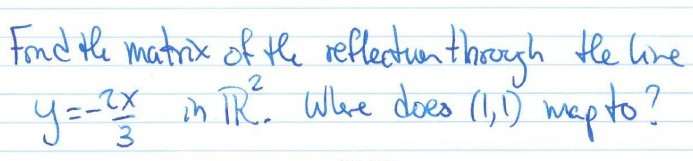 Find the matrix of the reflection through the line
y = -2x/3 in ℝ². Where does (1,1) map to?